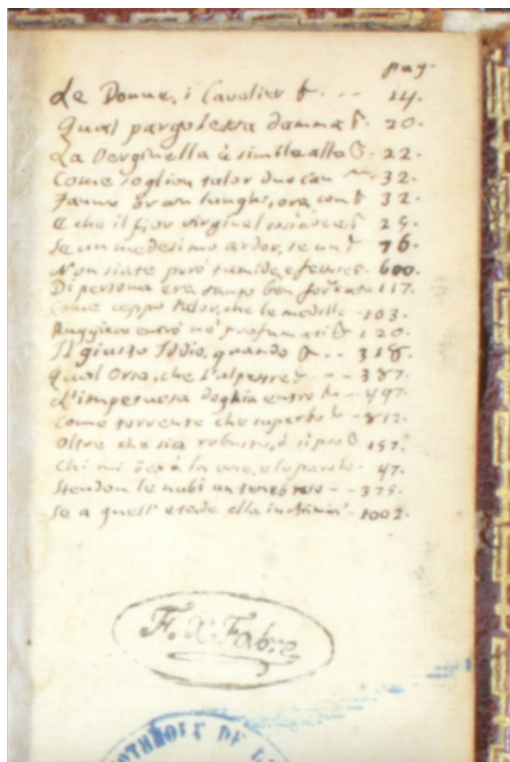 pag.
Le Donne, i Cavalier & - - - 14.
Qual pargoletta damma &. 20.
La Verginella è simile alla &. 22.
Come soglion talor duo can - 32.
Fanno or con lunghi, ora con & 32.
E che il fior virginal &. 25.
Se un medesimo ardor, se un & 76.
Non siate però tumide, e 600.
Di persona era tanto ben formata 117.
Come ceppo talor, che le medolle - 103.
Ruggiero entrò ne' profumati & 120.
Il giusto Iddio, quando & - - 318.
Qual Orsa, che l'alpestre & - - 387.
L'impetuosa doglia entro & - - 497.
Come torrente che superbo & - 812.
Oltre che sia robusto, è sì 157.
Chi mi darà la voce, e le parole - 47.
Stendon le nubi un tenebroso - - 375.
Se a quell' etade ella - 1002.
F. X. Fabre
OTHÈQUE DE L